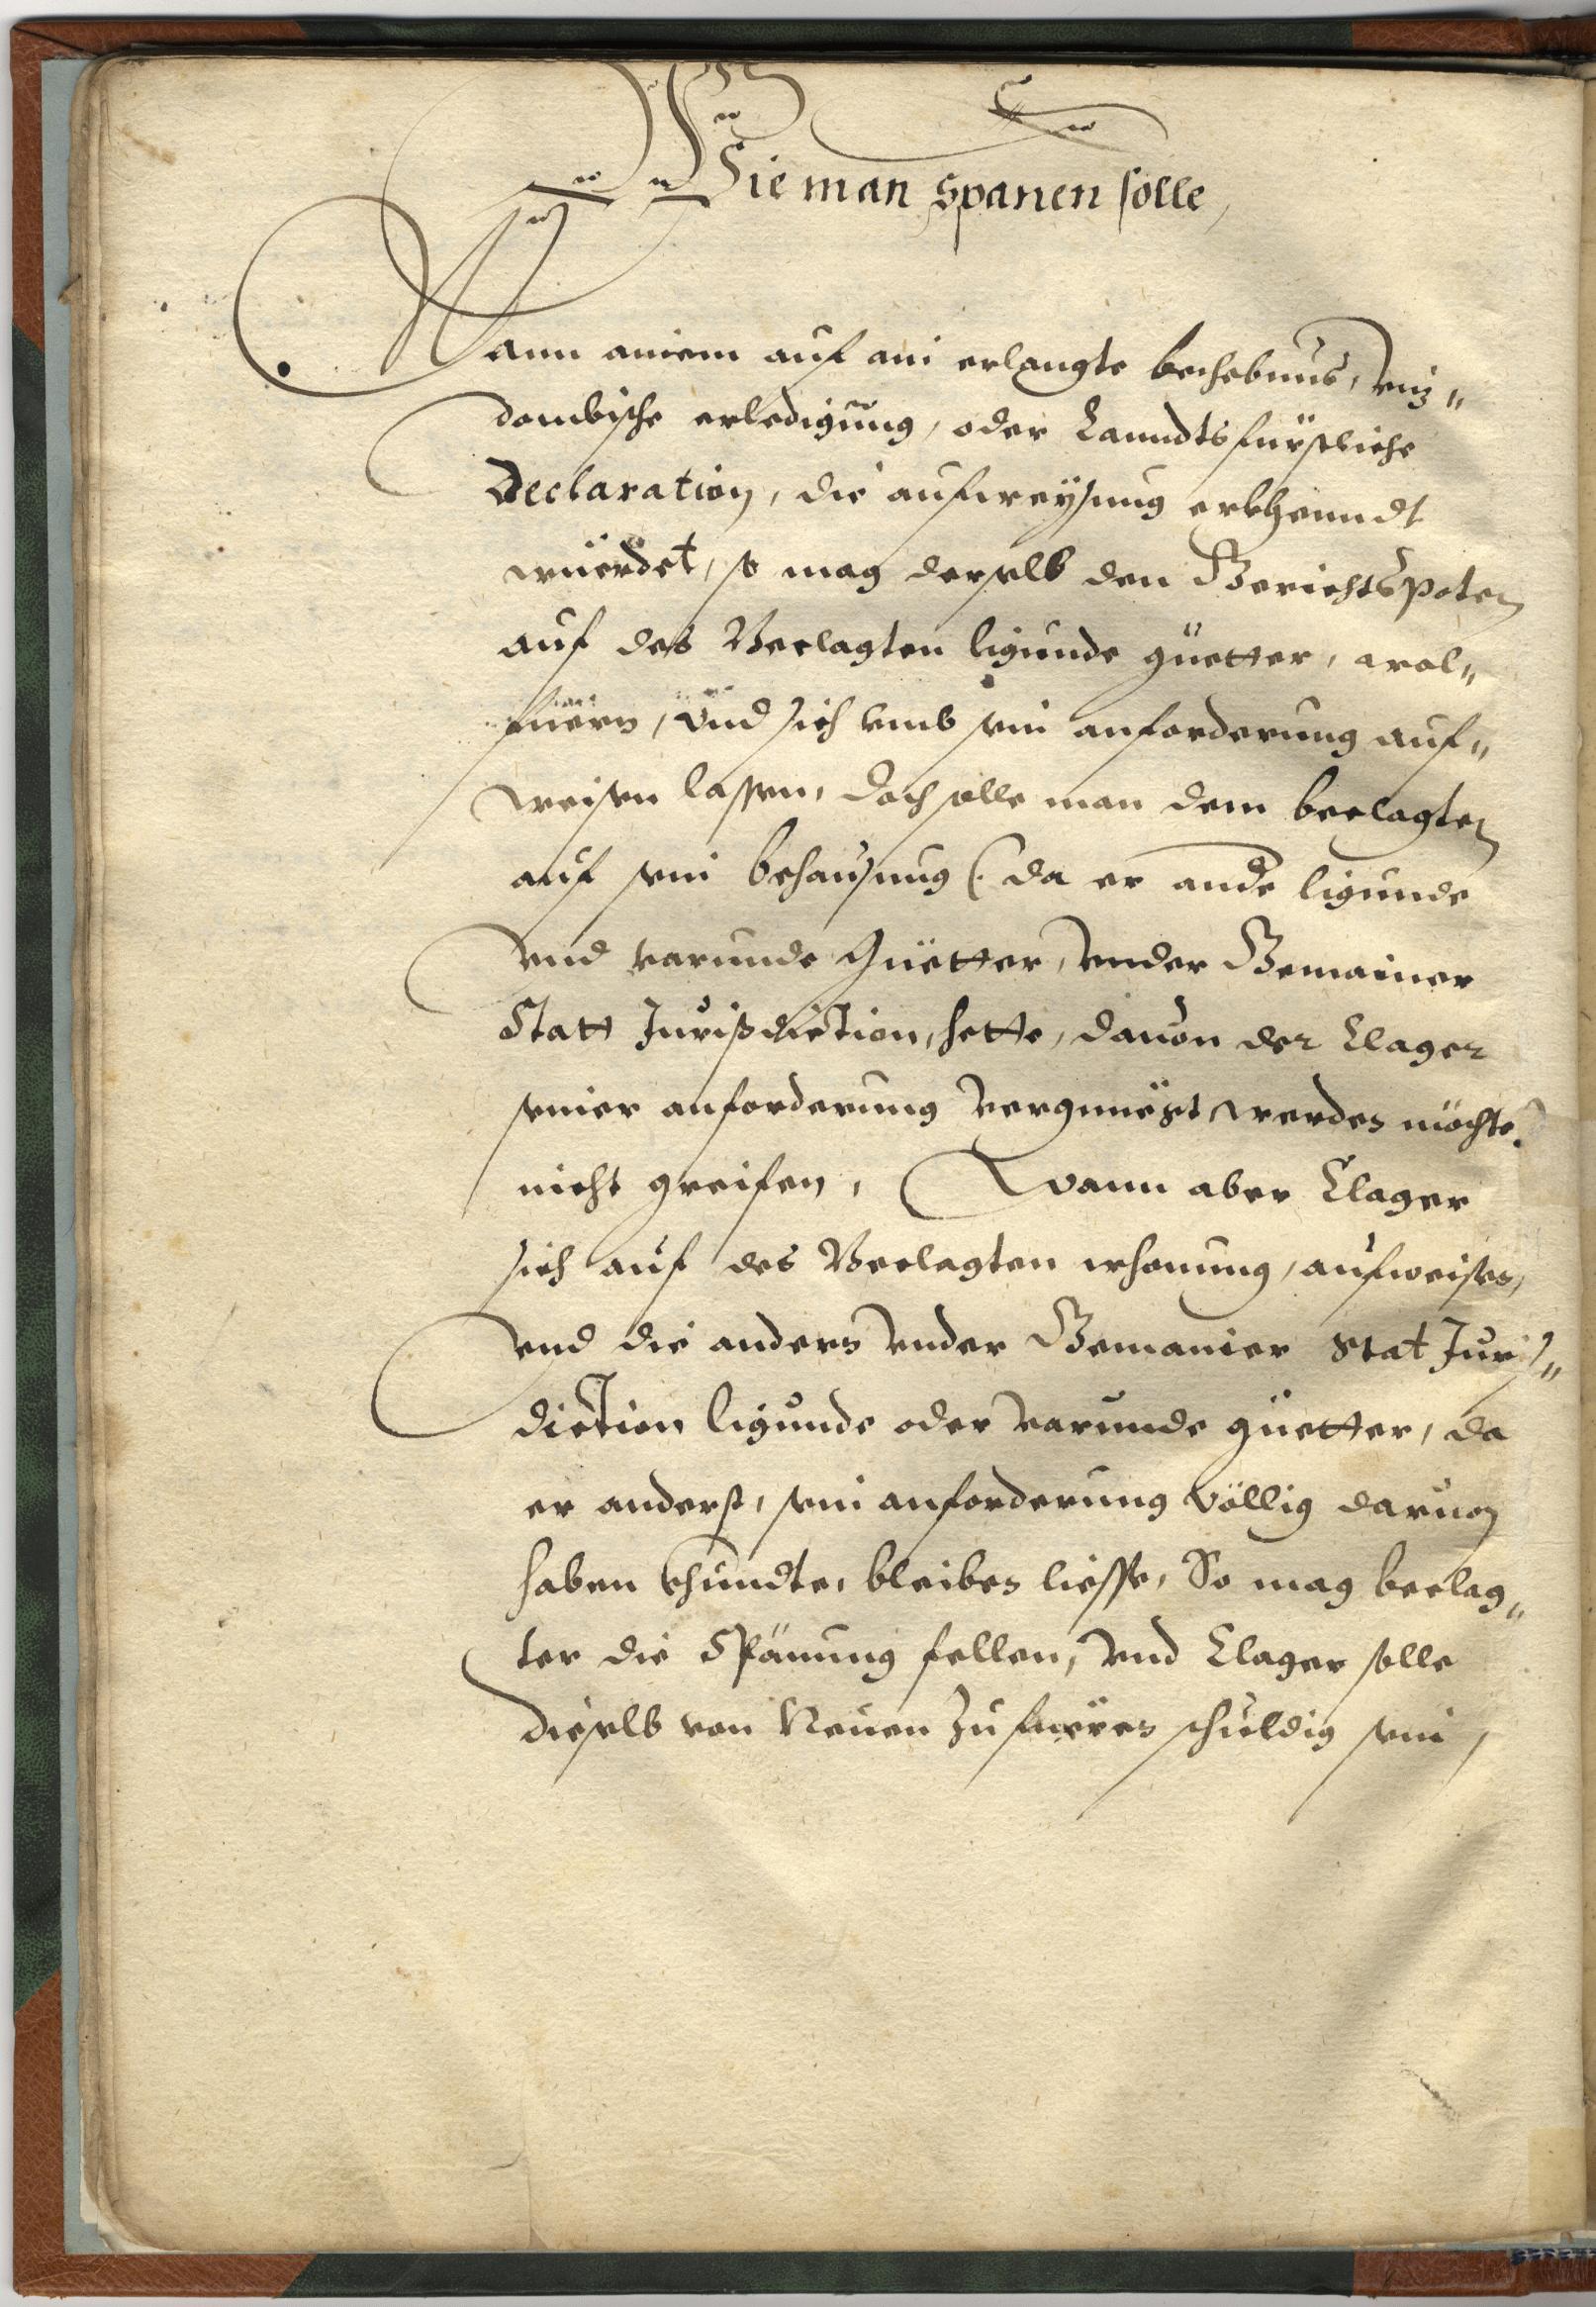 Wie man spanen solle,
Wann ainem auf ain erlangte bechebnus, viz„
dombische erledigung, oder Lanndtsfürstliche
Declaration, die aufweysung erkhenndt
wuërdet, so mag derselb den Gerichtspoten
auf des Beclagten ligunde güetter,
füern, vnd sich vmb sein anforderung auf„
weisen lassen, doch solle man dem beclagten
auf sein behausung (: da er andre ligunde
vnd varunde Güetter, vnder Gemainer
Statt Jurisdiction, hette, dauon der Clager
seiner anforderung vergnüegt werden möchte:)
nicht greifen, Wann aber Clager
sich auf des Beclagten wohnung, aufweisen,
vnd die andern vnder Gemainer Stat Juris„
diction ligunde oder varunde güetter, da
er anderst, sein anforderung völlig daruon
haben khundte, bleiben liesse, So mag beclag„
ter die Spänung fellen, vnd Clager solle
dieselb von Neuen zu fueren schuldig sein,